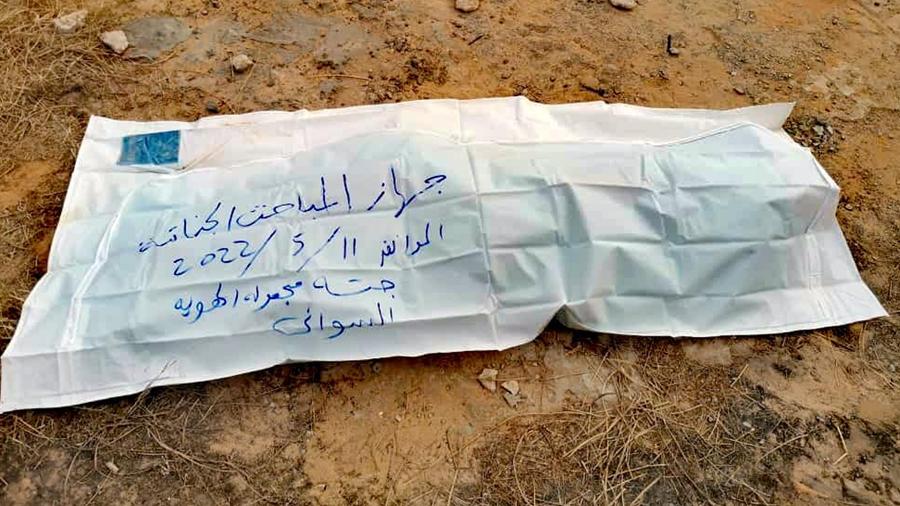 جهاز المباحث الجنائية
الموافق 11/5/2022
جثة مجهولة الهوية
السواني